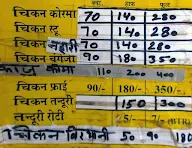 चिकन कोरमा 70 140 280
चिकन स्टू 70 140 280
चिकन नहारी 70 140 280
चिकन चंगेजी 90 180 350
110 200 400
चिकन फ्राई 90/- 180/- 350/-
चिकन तन्दूरी 150 300
तन्दूरी रोटी
चिकन बिरयानी 50 90 180